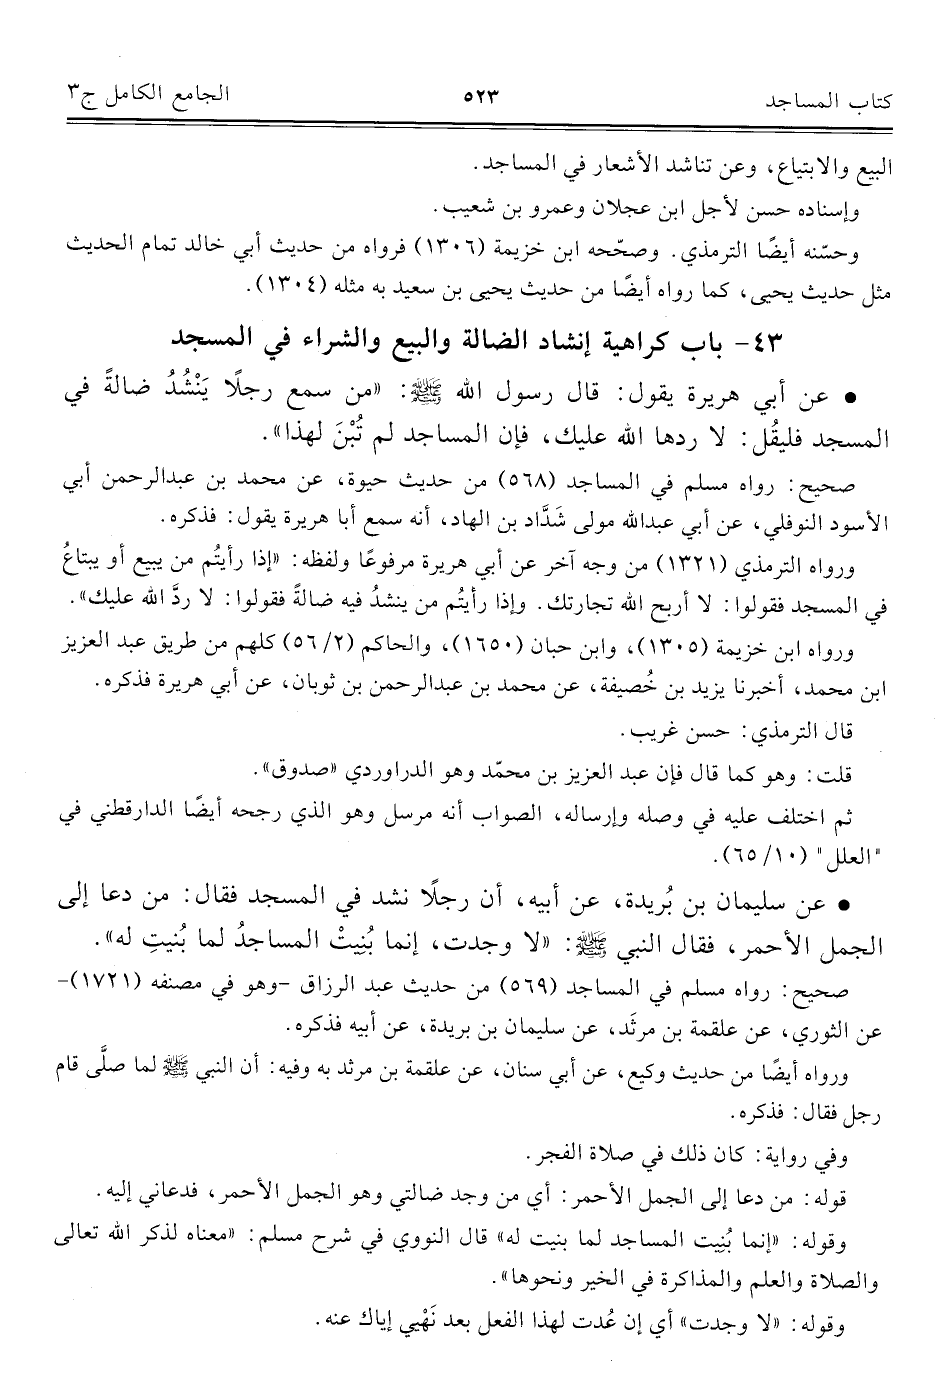 كتاب المساجد ٥٢٣ الجامع الكامل ج٣
البيع والابتياع، وعن تناشد الأشعار في المساجد.
وإسناده حسن لأجل ابن عجلان وعمرو بن شعيب.
وحسّنه أيضًا الترمذي. وصحّحه ابن خزيمة (١٣٠٦) فرواه من حديث أبي خالد تمام الحديث
مثل حديث يحيى، كما رواه أيضًا من حديث يحيى بن سعيد به مثله (١٣٠٤).
٤٣- باب كراهية إنشاد الضالة والبيع والشراء في المسجد
• عن أبي هريرة يقول: قال رسول الله ﷺ: «من سمع رجلًا يَنْشُدُ ضالةً في
المسجد فليقُل: لا ردها الله عليك، فإن المساجد لم تُبْنَ لهذا».
صحيح: رواه مسلم في المساجد (٥٦٨) من حديث حيوة، عن محمد بن عبدالرحمن أبي
الأسود النوفلي، عن أبي عبدالله مولى شَدَّاد بن الهاد، أنه سمع أبا هريرة يقول: فذكره.
ورواه الترمذي (١٣٢١) من وجه آخر عن أبي هريرة مرفوعًا ولفظه: «إذا رأيتُم من يبيع أو يبتاعُ
في المسجد فقولوا: لا أربح الله تجارتك. وإذا رأيتُم من ينشدُ فيه ضالةً فقولوا: لا ردَّ الله عليك».
ورواه ابن خزيمة (١٣٠٥)، وابن حبان (١٦٥٠)، والحاكم (٢/ ٥٦) كلهم من طريق عبد العزيز
ابن محمد، أخبرنا يزيد بن خُصيفة، عن محمد بن عبدالرحمن بن ثوبان، عن أبي هريرة فذكره.
قال الترمذي: حسن غريب.
قلت: وهو كما قال فإن عبد العزيز بن محمّد وهو الدراوردي «صدوق».
ثم اختلف عليه في وصله وإرساله، الصواب أنه مرسل وهو الذي رجحه أيضًا الدارقطني في
"العلل" (١٠/ ٦٥).
• عن سليمان بن بُريدة، عن أبيه، أن رجلًا نشد في المسجد فقال: من دعا إلى
الجمل الأحمر، فقال النبي ﷺ: «لا وجدت، إنما بُنِيتْ المساجدُ لما بُنيتِ له».
صحيح: رواه مسلم في المساجد (٥٦٩) من حديث عبد الرزاق -وهو في مصنفه (١٧٢١)-
عن الثوري، عن علقمة بن مرثَد، عن سليمان بن بريدة، عن أبيه فذكره.
ورواه أيضًا من حديث وكيع، عن أبي سنان، عن علقمة بن مرثد به وفيه: أن النبي ﷺ لما صلَّى قام
رجل فقال: فذكره.
وفي رواية: كان ذلك في صلاة الفجر.
قوله: من دعا إلى الجمل الأحمر: أي من وجد ضالتي وهو الجمل الأحمر، فدعاني إليه.
وقوله: «إنما بُنِيت المساجد لما بنيت له» قال النووي في شرح مسلم: «معناه لذكر الله تعالى
والصلاة والعلم والمذاكرة في الخير ونحوها».
وقوله: «لا وجدت» أي إن عُدت لهذا الفعل بعد نَهْيي إياك عنه.